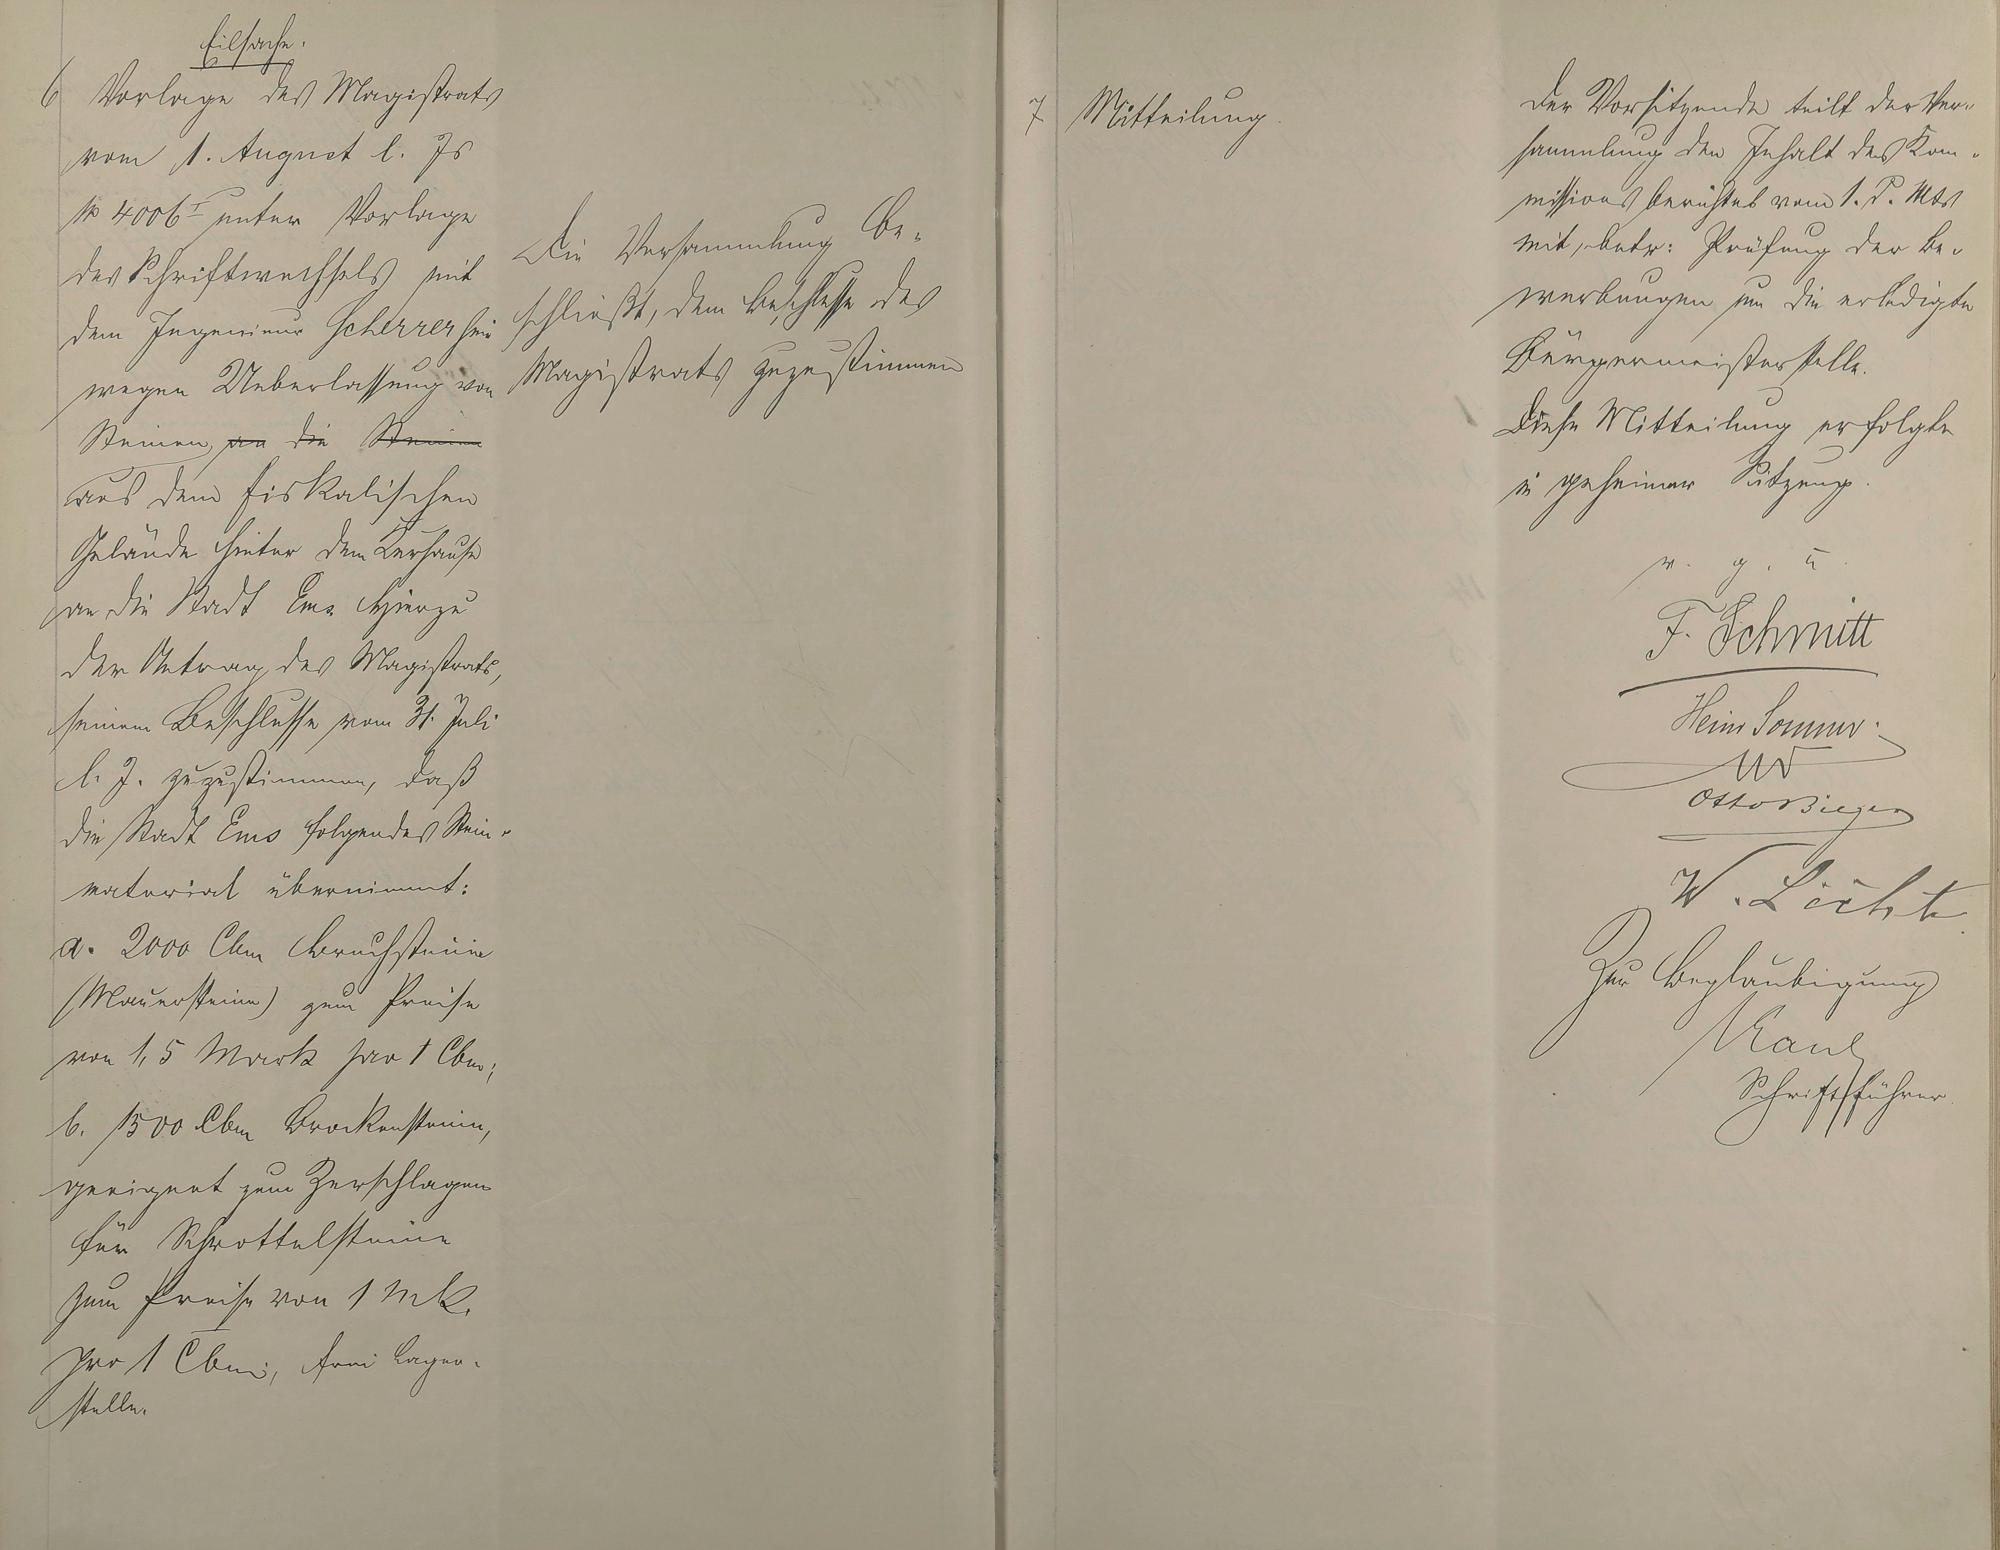 Eilsache.
6 Vorlage des Magistrats
vom 1. August l. Js
No 4006 I unter Vorlage
des Schriftwechsels mit
dem Ingenieur Scherrer hier
wegen Ueberlassung von
Steinen an die Steinen
aus dem fiskalischen
Gelände hinter dem Kurhause
an die Stadt Ems Hierzu
der Antrag des Magistrats,
seinem Beschlusse vom 31. Juli
l. J. zuzustimmen, daß
die Stadt Ems folgendes Stein-
material übernimmt:
a. 2000 Cbm Bruchsteine
(Mauersteine) zum Preise
von 1,5 Mark pro 1 Cbm;
b. 1500 Cbm Brockensteine,
geeignet zum Zerschlagen
für Schrottelsteine
zum Preise von 1 Mk.
pro 1 Cbm, frei Lager-
stelle.
Die Versammlung be-
schließt, dem Beschlusse des
Magistrats zuzustimmen
7 Mitteilung.
Der Vorsitzende teilt der Ver-
sammlung den Inhalt des Kom-
missions berichtes vom 1. d. Mts
mit, betr: Prüfung der Be-
werbungen um die erledigte
Bürgermeisterstelle.
Diese Mitteilung erfolgte
in geheimer Sitzung.
v. g. u
F. Schmitt
Heinr Sommer
Otto Bieger
W. Licht
Zur Beglaubigung
Kaul
Schriftführer